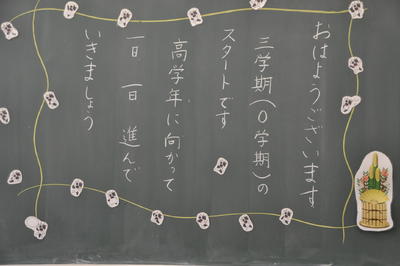 おはようございます
三学期(0学期)の
スタートです
高学年に向かって
一日一日 進んで
いきましょう